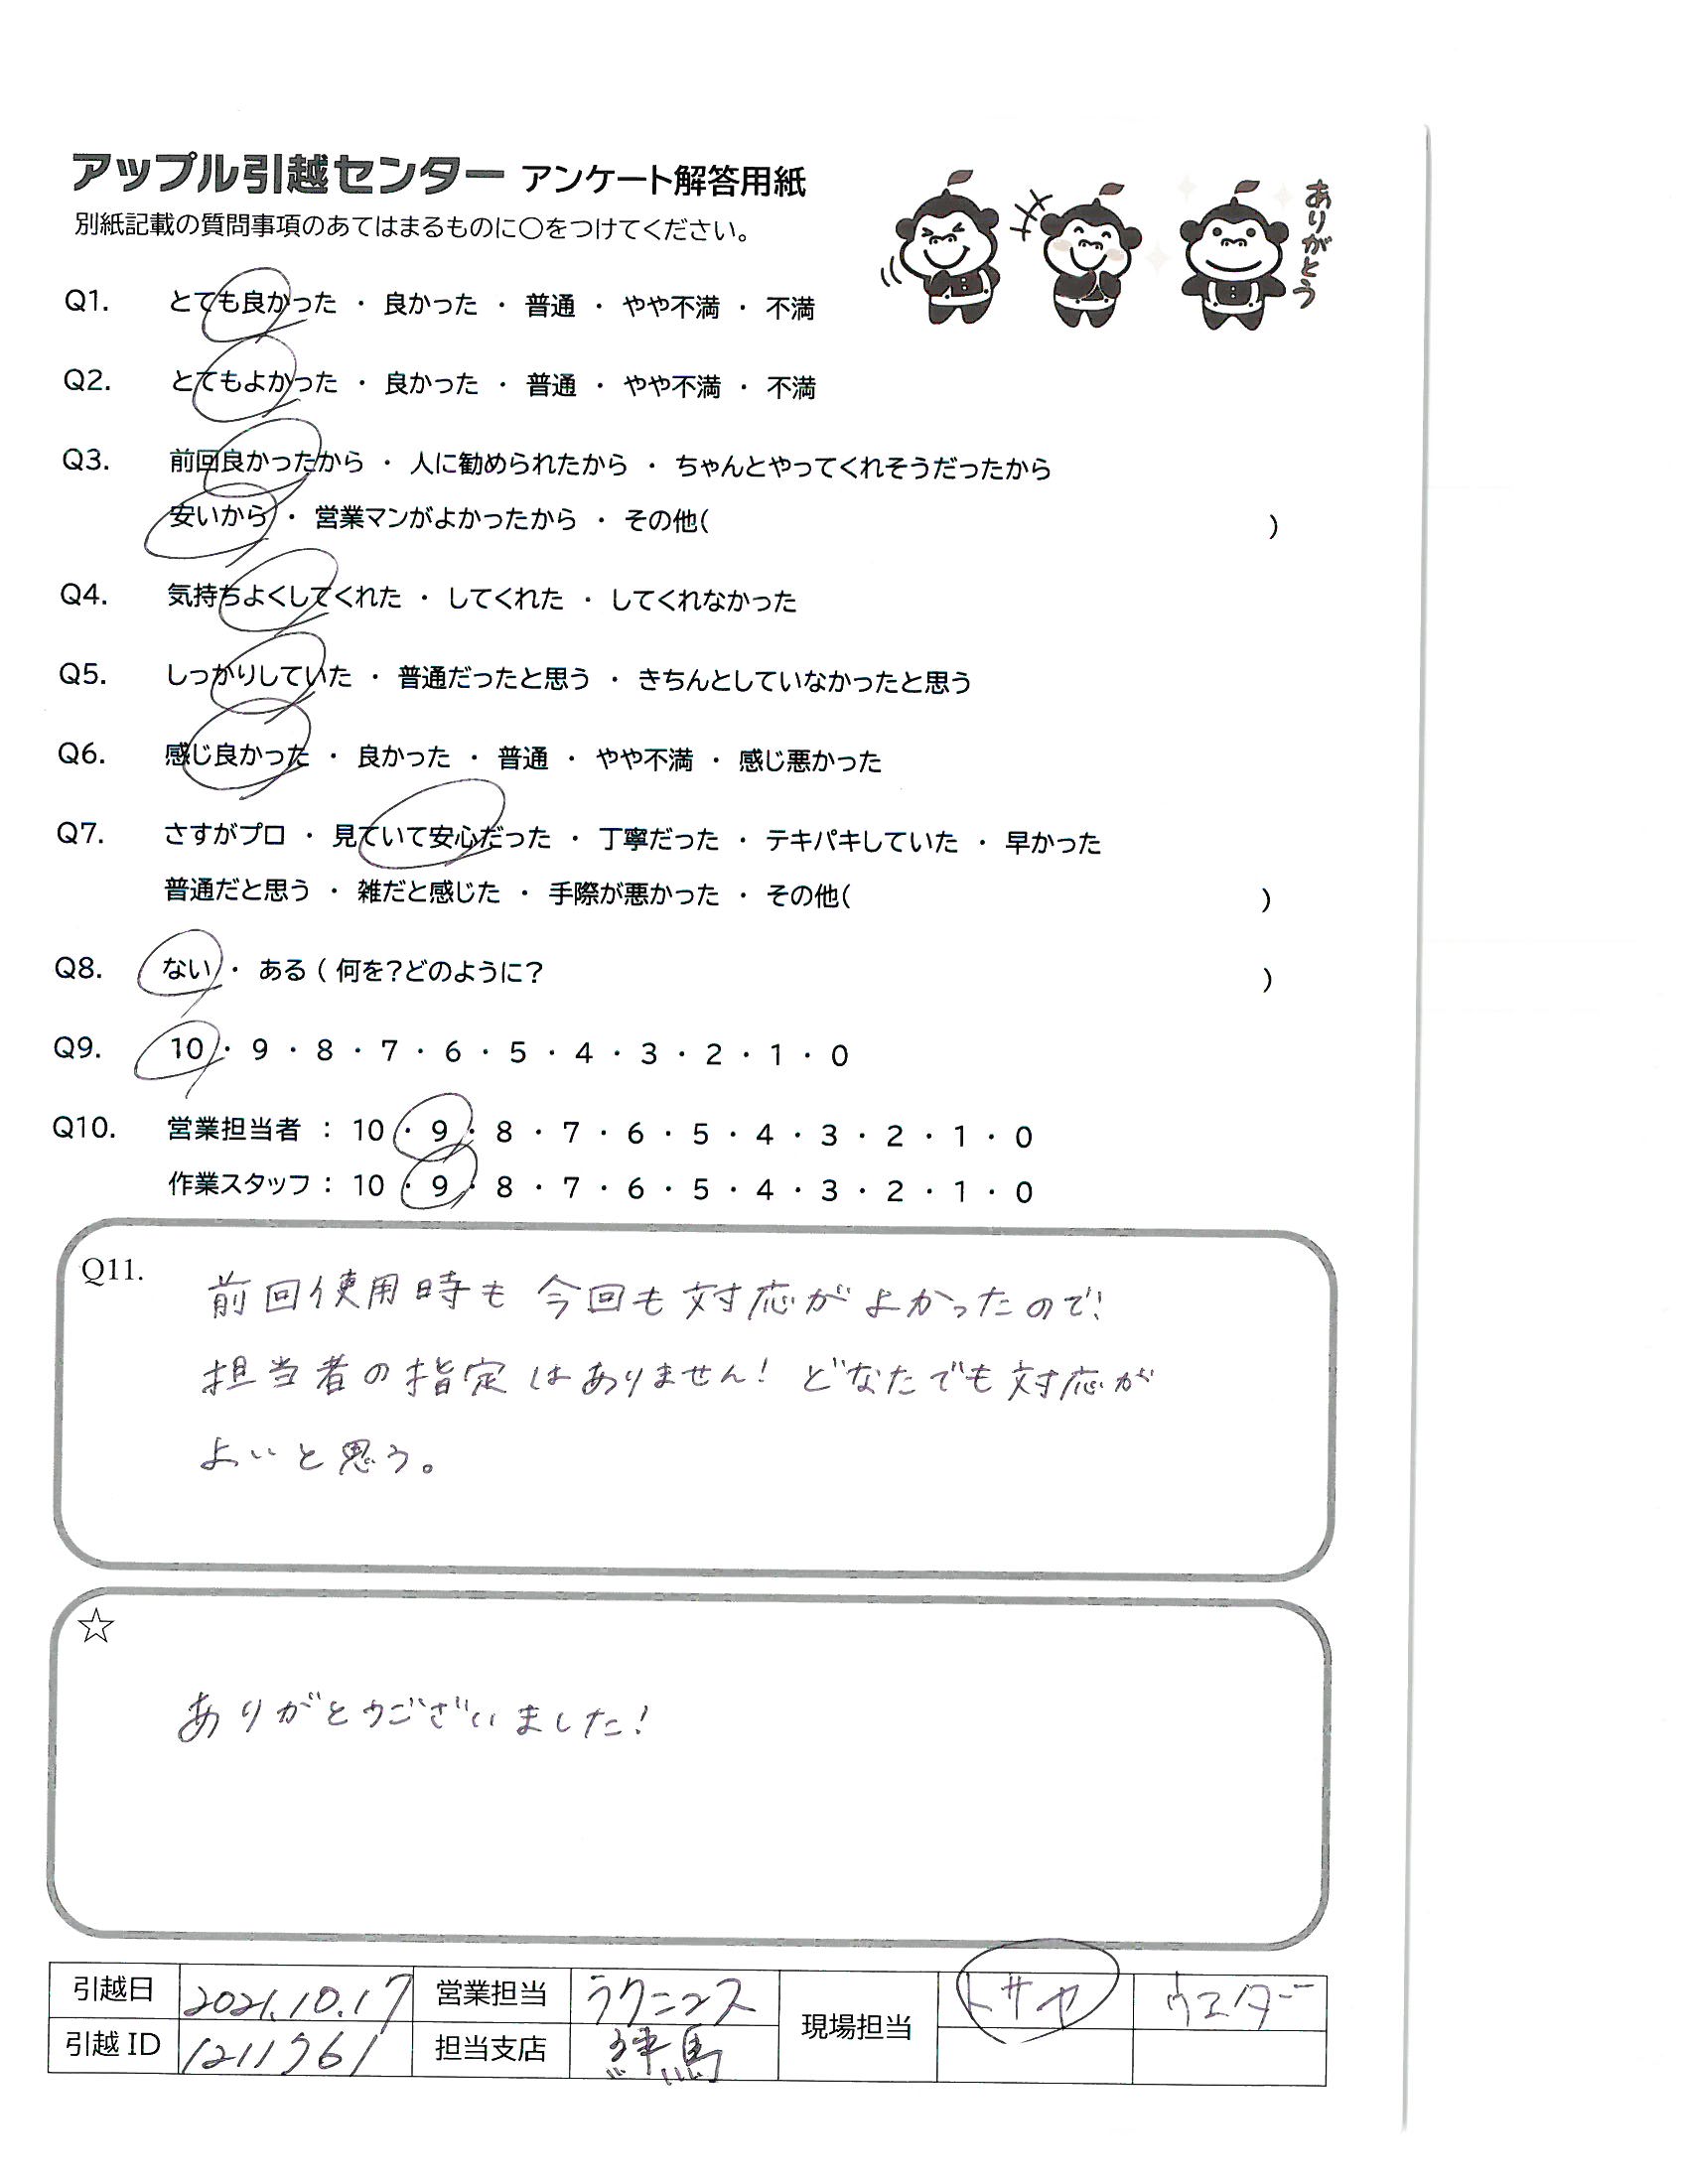 アップル引越センター アンケート解答用紙
別紙記載の質問事項のあてはまるものに○をつけてください。
ありがとう
Q1. とても良かった ・ 良かった ・ 普通 ・ やや不満 ・ 不満
Q2. とてもよかった ・ 良かった ・ 普通 ・ やや不満 ・ 不満
Q3. 前回良かったから ・ 人に勧められたから ・ ちゃんとやってくれそうだったから
安いから ・ 営業マンがよかったから ・ その他( )
Q4. 気持ちよくしてくれた ・ してくれた ・ してくれなかった
Q5. しっかりしていた ・ 普通だったと思う ・ きちんとしていなかったと思う
Q6. 感じ良かった ・ 良かった ・ 普通 ・ やや不満 ・ 感じ悪かった
Q7. さすがプロ ・ 見ていて安心だった ・ 丁寧だった ・ テキパキしていた ・ 早かった
普通だと思う ・ 雑だと感じた ・ 手際が悪かった ・ その他( )
Q8. ない ・ ある ( 何を?どのように? )
Q9. 10 ・ 9 ・ 8 ・ 7 ・ 6 ・ 5 ・ 4 ・ 3 ・ 2 ・ 1 ・ 0
Q10. 営業担当者 : 10 ・ 9 ・ 8 ・ 7 ・ 6 ・ 5 ・ 4 ・ 3 ・ 2 ・ 1 ・ 0
作業スタッフ : 10 ・ 9 ・ 8 ・ 7 ・ 6 ・ 5 ・ 4 ・ 3 ・ 2 ・ 1 ・ 0
Q11. 前回使用時も今回も対応がよかったので!
担当者の指定はありません! どなたでも対応が
よいと思う。
☆
ありがとうございました!
引越日 2021.10.17 営業担当 ラクニコス 現場担当 トサヤ ウエダ
引越 ID 担当支店 練馬